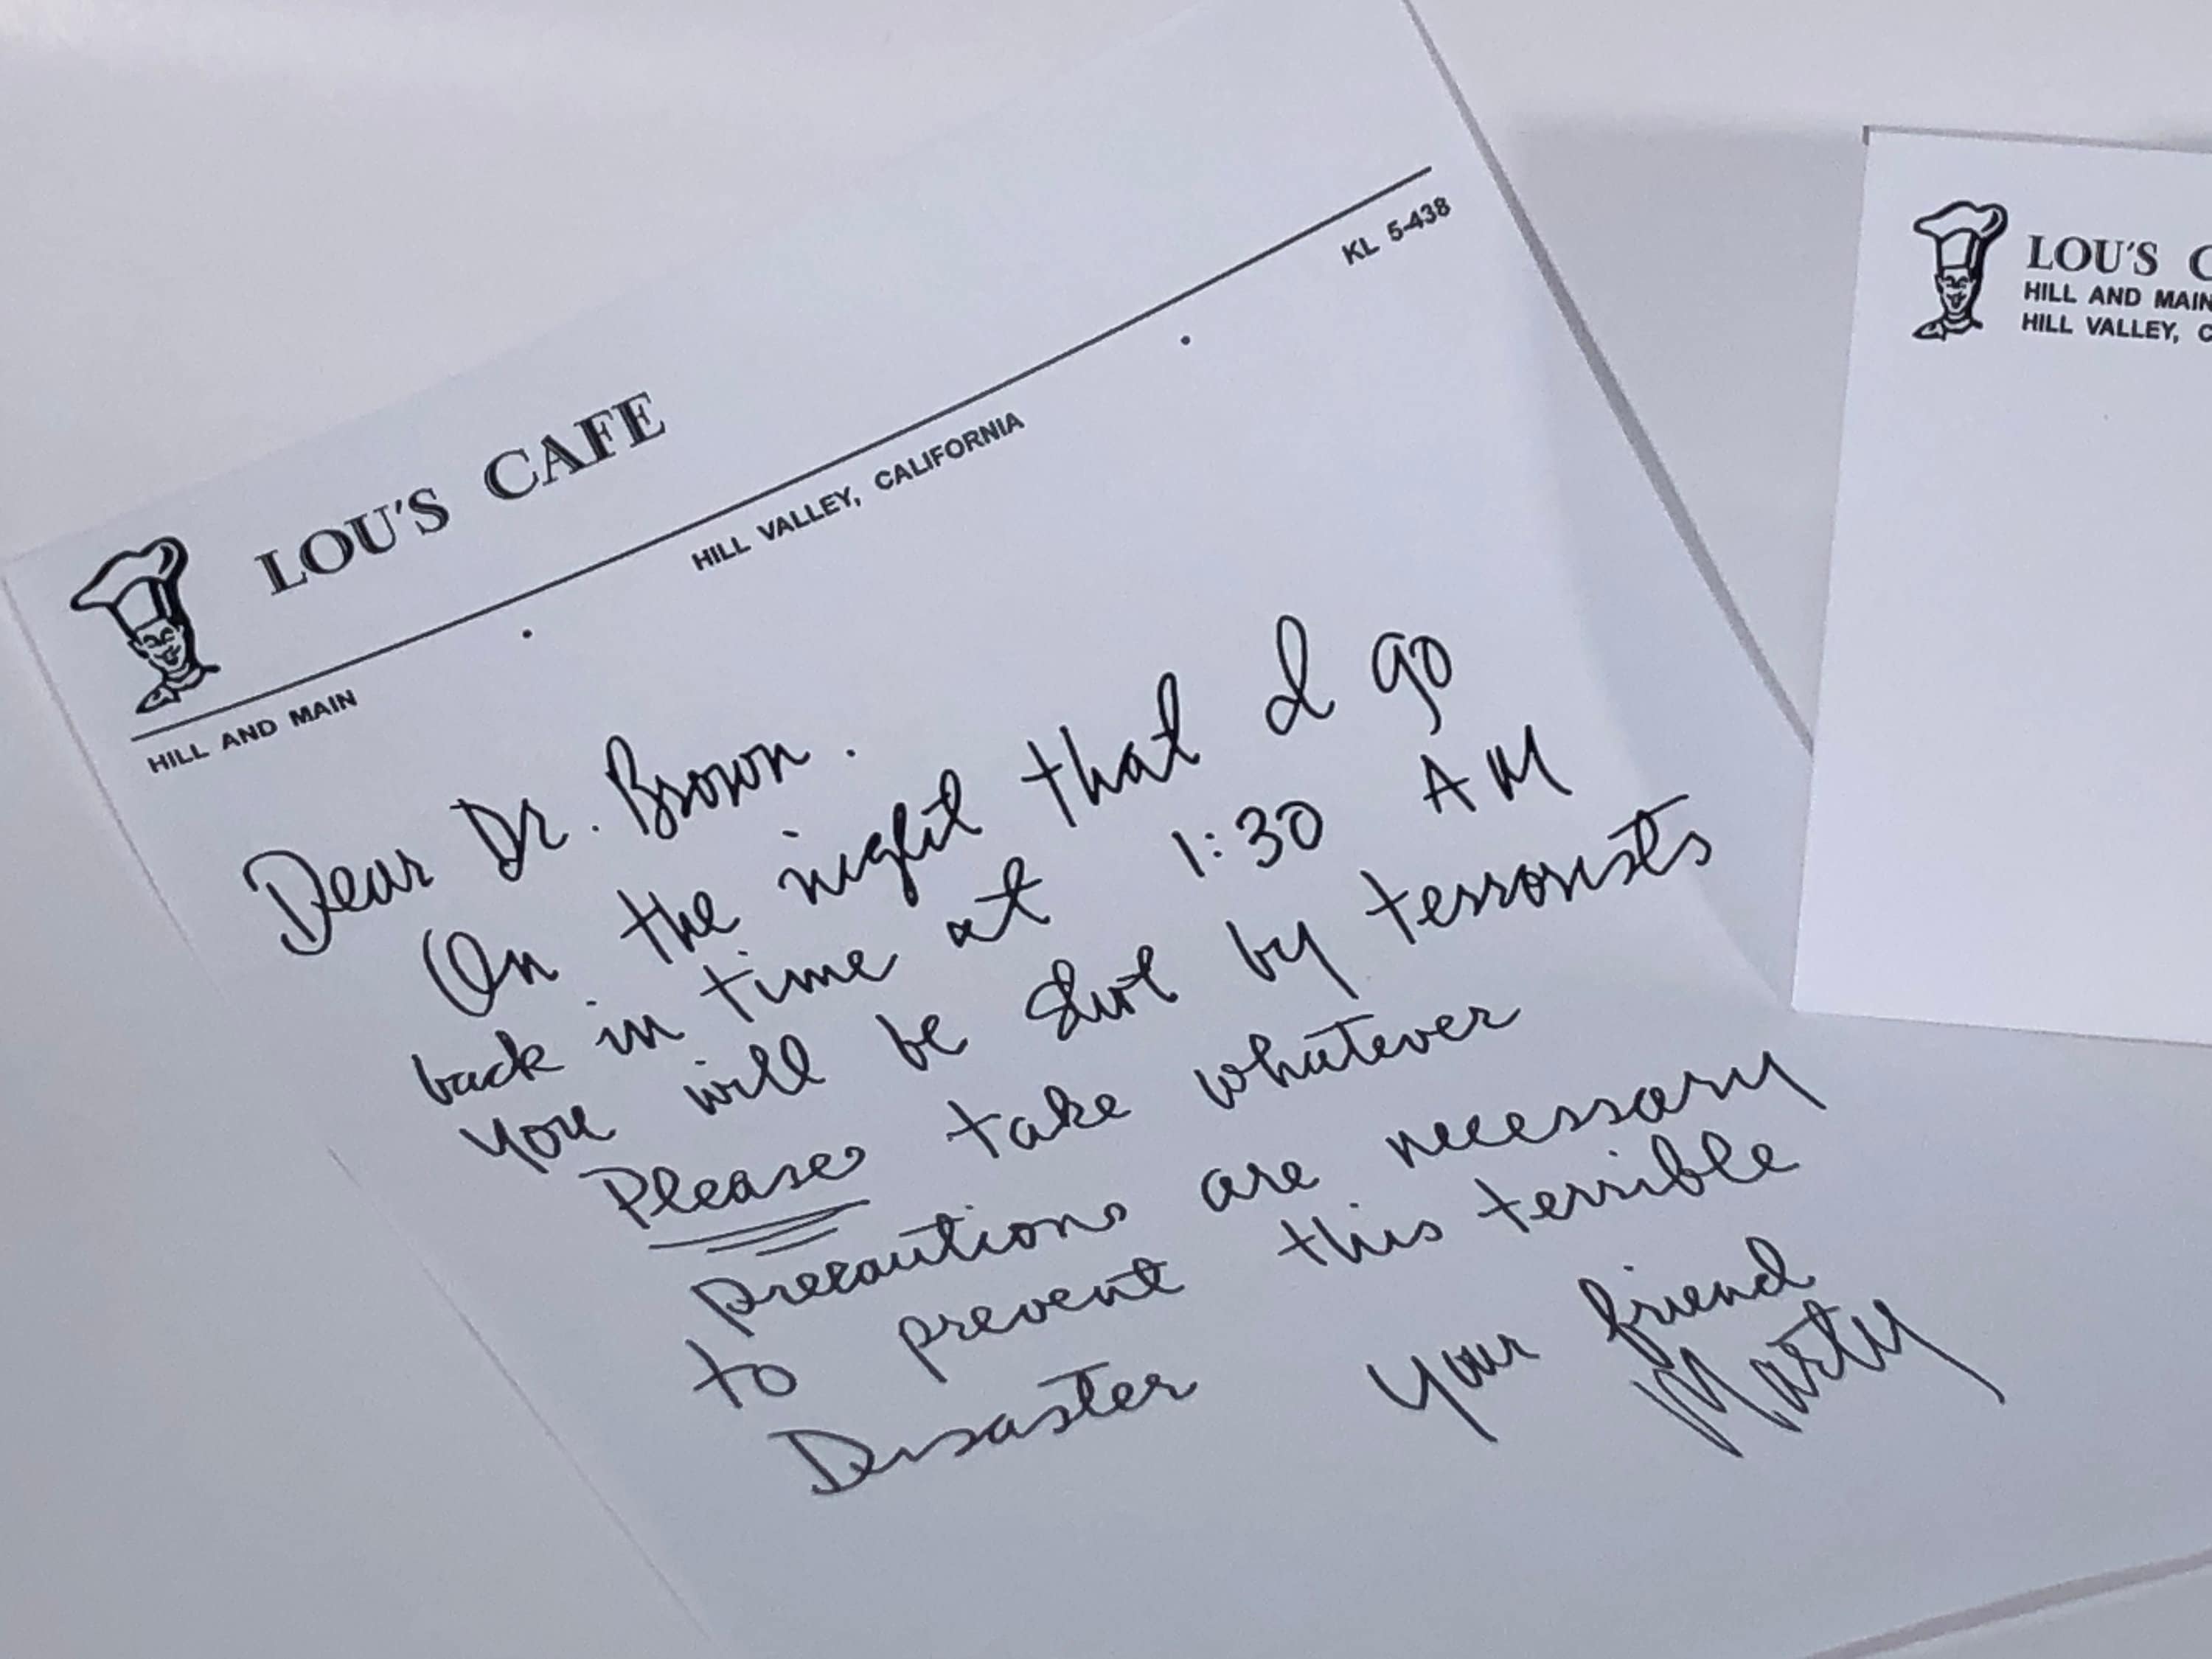 LOU'S CAFE
HILL AND MAIN • HILL VALLEY, CALIFORNIA • KL 5-438
Dear Dr. Brown.
On the night that I go
back in time at 1:30 AM
you will be shot by terrorists
Please take whatever
precautions are necessary
to prevent this terrible
Disaster
Your friend
Marty
LOU'S C
HILL AND MAIN
HILL VALLEY, C